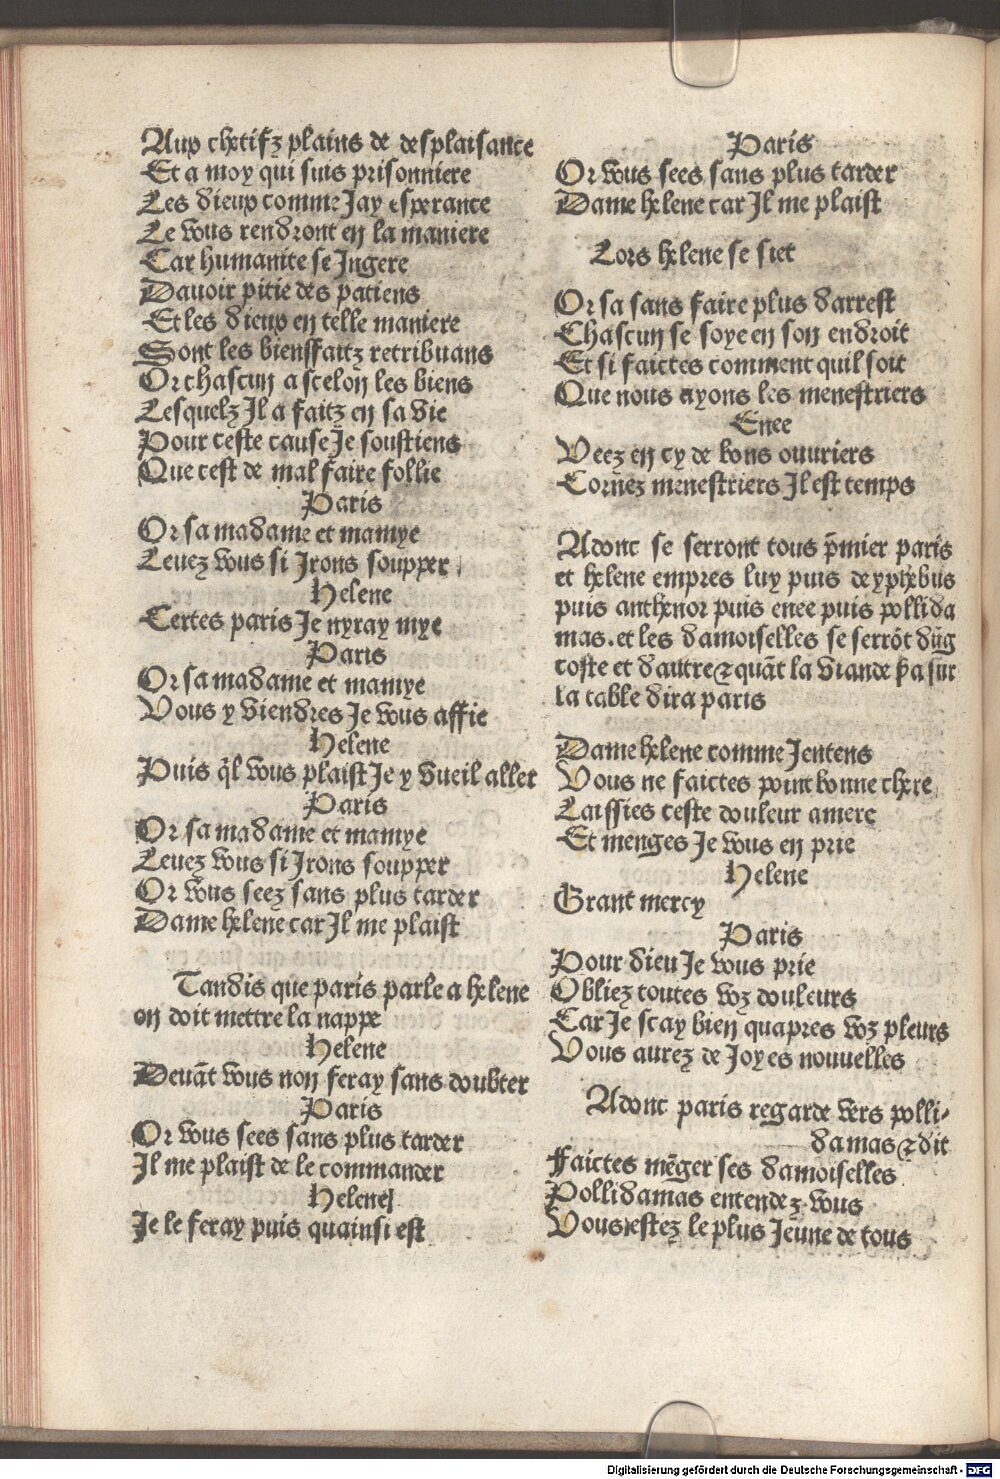 Aux chetifz plains de desplaisance
Et a moy qui suis prisonniere
Les dieux comme Jay esperance
Le vous rendront en la maniere
Car humanite se Ingere
Dauoir pitie des patiens
Et les dieux en telle maniere
Sont les bienffaitz retribuans
Or chascun a scelon les biens
Lesquelz Il a faitz en sa vie
Pour ceste cause Je soustiens
Que cest de mal faire follie
Paris
Or sa madame et mamye
Leuez vous si Irons soupper
Helene
Certes paris Je nyray mye
Paris
Or sa madame et mamye
Vous y viendres Je vous affie
Helene
Puis q̄l vous plaist Je y vueil aller
Paris
Or sa madame et mamye
Leuez vous si Irons soupper
Or vous seez sans plus tarder
Dame helene car Il me plaist
Tandis que paris parle a helene
on doit mettre la nappe
Helene
Deuāt vous non feray sans doubter
Paris
Or vous sees sans plus tarder
Il me plaist de le commander
Helene
Je le feray puis quainsi est
Paris
Or vous sees sans plus tarder
Dame helene car Il me plaist
Lors helene se siet
Or sa sans faire plus darrest
Chascun se soye en son endroit
Et si faictes comment quil soit
Que nous ayons les menestriers
Enee
Veez en cy de bons ouuriers
Cornez menestriers Il est temps
Adonc se serront tous p̄mier paris
et helene empres luy puis deyphebus
puis anthenor puis enee puis pollida
mas. et les damoiselles se serrōt dūg
coste et dautre ⁊ quāt la viande ꝑa sur
la table dira paris
Dame helene comme Jentens
Vous ne faictes point bonne chere
Laissies ceste douleur amere
Et menges Je vous en prie
Helene
Grant mercy
Paris
Pour dieu Je vous prie
Obliez toutes voz douleurs
Car Je scay bien quapres voz pleurs
Vous aurez de Joyes nouuelles
Adonc paris regarde vers polli-
damas ⁊ dit
Faictes mēger ses damoiselles
Pollidamas entendez vous
Vous estez le plus Jeune de tous
Digitalisierung gefördert durch die Deutsche Forschungsgemeinschaft - DFG